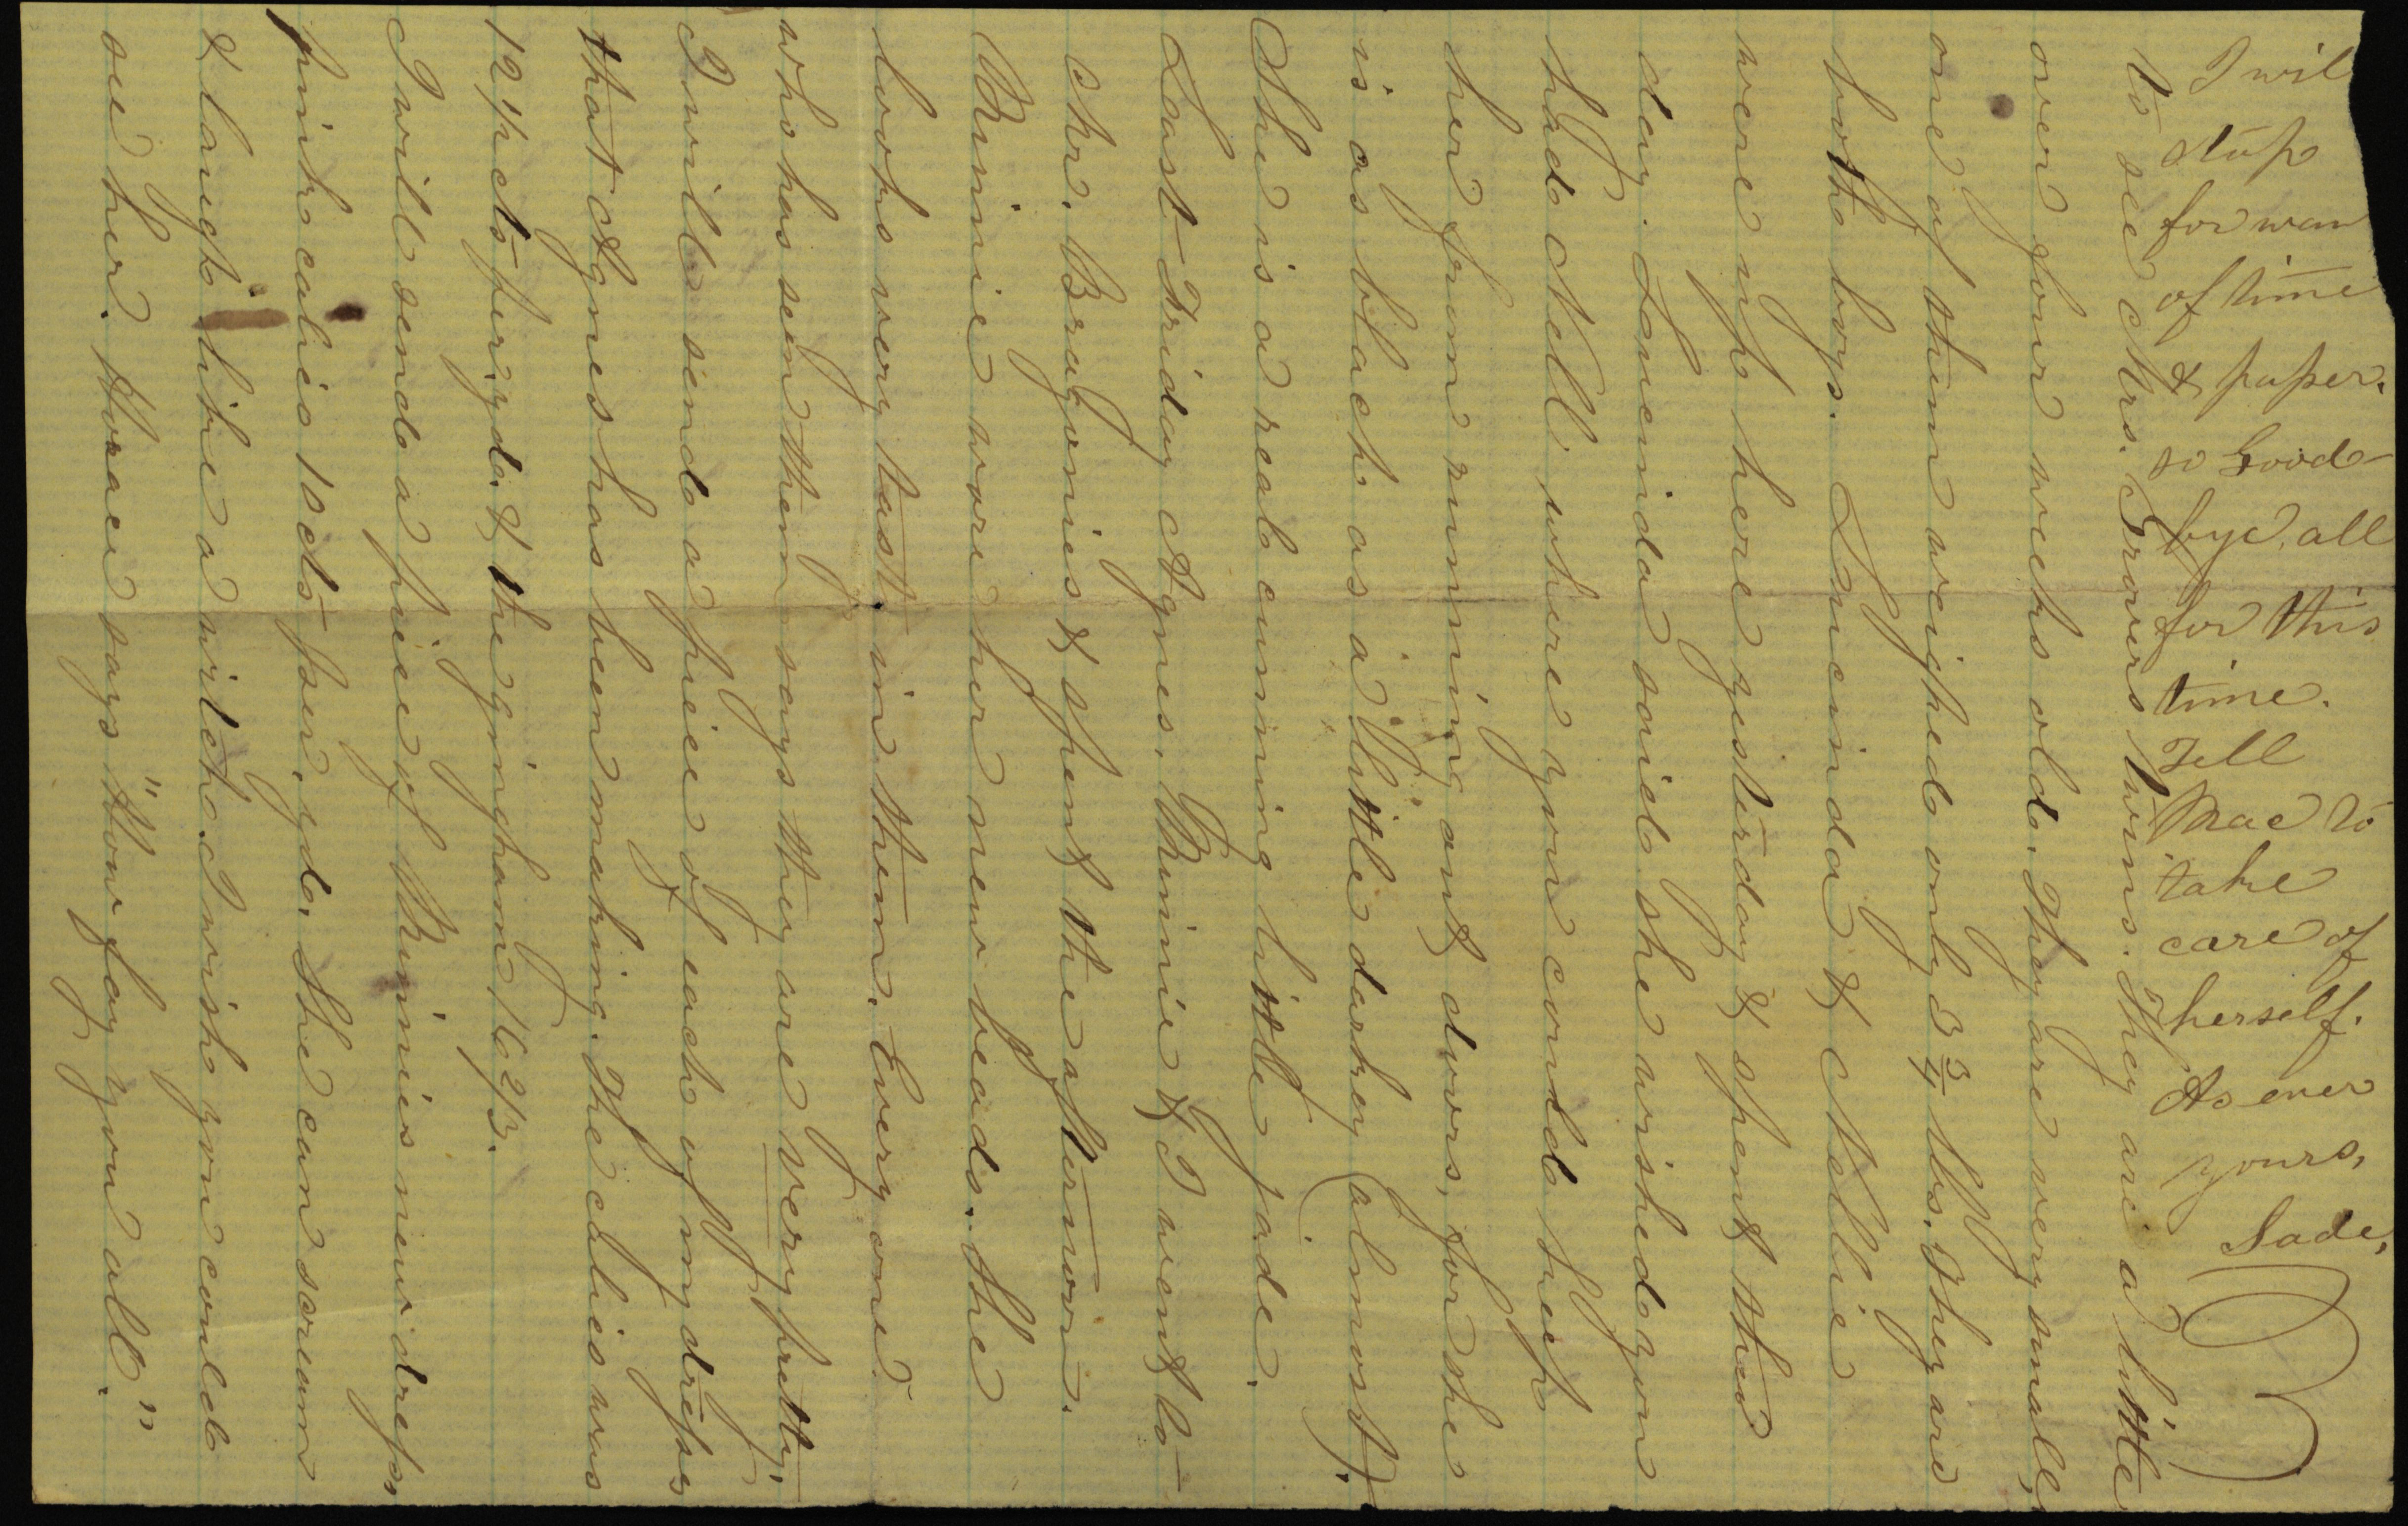 to see Mrs. Grovers twins. They are a little
over four weeks old. They are very small,
one of them weighed only 3 3/4 lbs. They are
both boys. Lucinda & Nellie
were up here yesterday & spent the
day. Lucinda said she wished you
had Nell where you could keep
her from running out doors, for she
is as black as a little darkey (almost).
She is a real cunning little jade.
Last Friday Agnes, Minie & I went to
Mr. & spent the afternoon.
Minie wore her new beads. She
looks very tasty in them. Every one
who has seen them says they are very pretty.
I will send a piece of each of my dresses
that Agnes has been making. The calico was
12 1/2 cts per. yd. & the gingham 16 2/3.
I will send a piece of Minies new dress,
pink calico 10 cts per. yd. She can scream
& laugh like a witch. I wish you could
see her. Horace says "How fay you all."
I wil
stop
for wan
of time
& paper.
so Good-
bye, all
for this
time.
Tell
Mae to
take
care of
herself.
As ever
yours,
Sade,